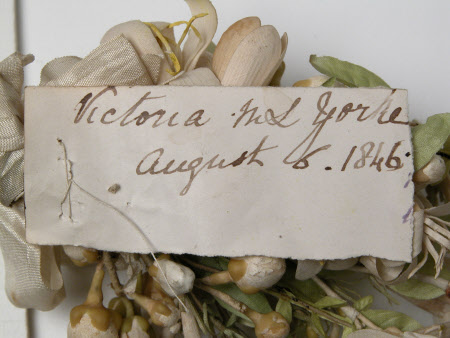 Victoria M L Yorke
August 6. 1846.